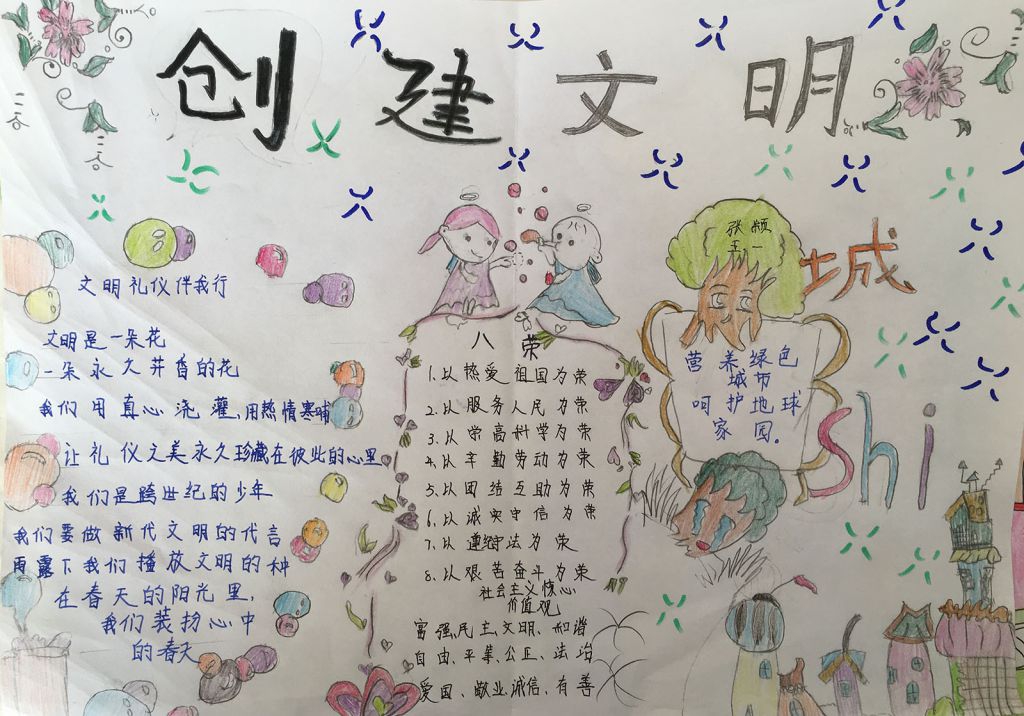 创建文明
城
shi
文明礼仪伴我行
文明是一朵花
一朵永久芬香的花
我们用真心浇灌,用热情寒哺
让礼仪之美永久珍藏在彼此的心里
我们是跨世纪的少年
我们要做新代文明的代言
雨露下我们播放文明的种
在春天的阳光里,
我们装扮心中
的春天
八荣
1.以热爱祖国为荣
2.以服务人民为荣
3.以崇高科学为荣
4.以辛勤劳动为荣
5.以团结互助为荣
6.以诚实守信为荣
7.以遵守法为荣
8.以艰苦奋斗为荣
社会主义惊心
价值观
富强、民主、文明、和谐
自由、平等、公正、法治
爱国、敬业、诚信、有善
营养绿色
城市
呵护地球
家园.